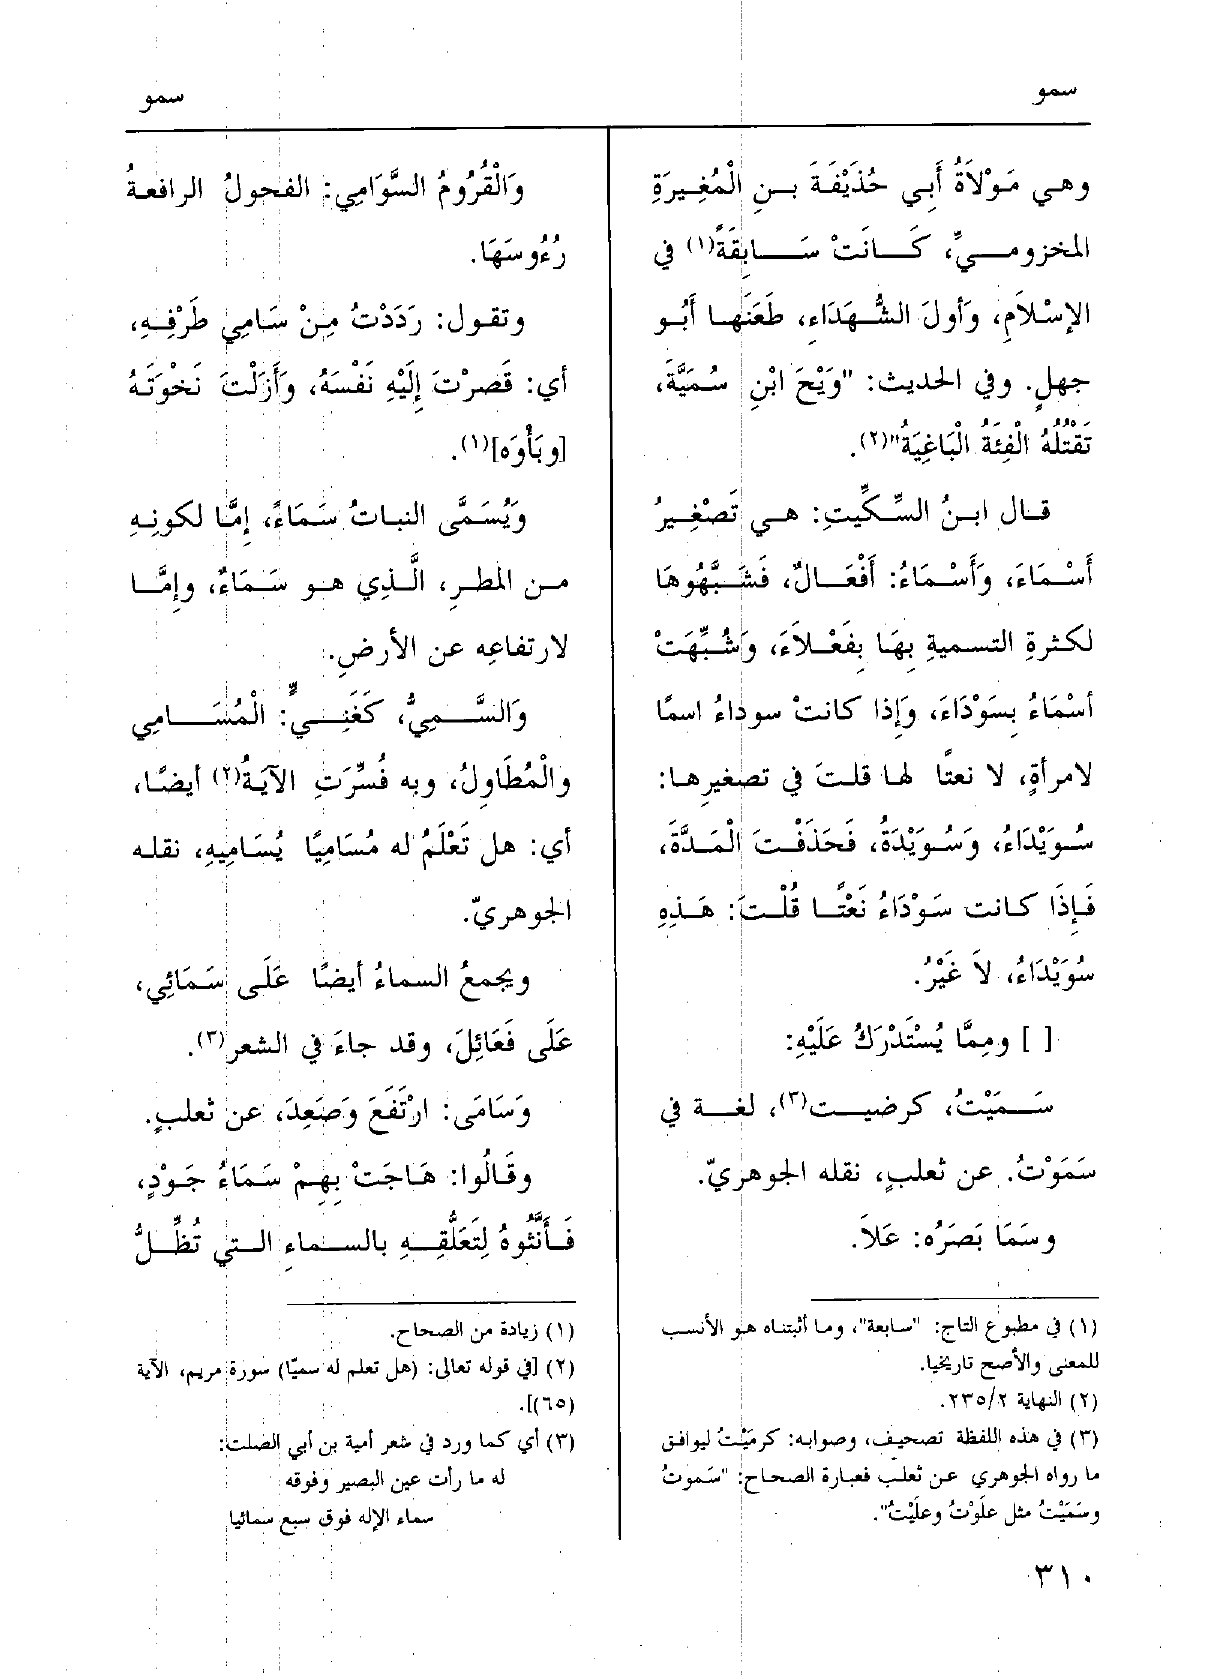 سمو
سمو
وهي مَوْلاَةُ أَبي حُذَيْفَةَ بنِ الْمُغِيرَةِ
المخزوميِّ، كَانَتْ سَابِقَةً(١) في
الإسْلاَمِ، وَأولَ الشُّهَدَاءِ، طَعَنَها أَبُو
جهلٍ. وفي الحديث: "وَيْحَ ابْنِ سُمَيَّةَ،
تَقْتُلُهُ الْفِئَةُ الْبَاغِيَةُ"(٢).
قال ابنُ السِّكِّيتِ: هي تَصْغِيرُ
أَسْمَاءَ، وَأَسْمَاءُ: أَفْعَالٌ، فَشَبَّهُوهَا
لكثرةِ التسميةِ بِهَا بِفَعْلاَءَ، وَشُبِّهَتْ
أسْمَاءُ بِسَوْدَاءَ، وَإذا كانتْ سوداءُ اسمًا
لامرأةٍ، لا نعتًا لها قلتَ في تصغيرها:
سُوَيْدَاءُ، وَسُوَيْدَةُ، فَحَذَفْتَ الْمَدَّةَ،
فَإِذَا كانت سَوْدَاءُ نَعْتًا قُلْتَ: هَذِهِ
سُوَيْدَاءُ، لاَ غَيْرُ.
[ ] ومِمَّا يُسْتَدْرَكُ عَلَيْهِ:
سَمَيْتُ، كرضيت(٣)، لغة في
سَمَوْتُ. عن ثعلبٍ، نقله الجوهريّ.
وسَمَا بَصَرُه: عَلاَ.
(١) في مطبوع التاج: "سابعة"، وما أثبتناه هو الأنسب
للمعنى والأصح تاريخيا.
(٢) النهاية ٢/ ٢٣٥.
(٣) في هذه اللفظة تصحيف، وصوابه: كرمَيْتُ ليوافق
ما رواه الجوهري عن ثعلب فعبارة الصحاح: "سَموتُ
وسَمَيْتُ مثل علَوْتُ وعلَيْتُ".
وَالْقُرُومُ السَّوَامِي: الفحولُ الرافعةُ
رُءُوسَهَا.
وتقول: رَدَدْتُ مِنْ سَامِي طَرْفِهِ،
أي: قَصرْتَ إِلَيْهِ نَفْسَهُ، وَأزَلْتَ نَخْوَتَهُ
[وبَأْوَه](١).
وَيُسَمَّى النباتُ سَمَاءً، إمَّا لكونِهِ
من المطرِ، الَّذِي هو سَمَاءٌ، وإمَّا
لارتفاعِه عن الأرضِ.
وَالسَّمِيُّ، كَغَنِيٍّ: الْمُسَامِي
والْمُطَاوِلُ، وبه فُسِّرَتِ الآيَةُ(٢) أيضًا،
أي: هل تَعْلَمُ له مُسَامِيًا يُسَامِيهِ، نقله
الجوهريّ.
ويجمعُ السماءُ أيضًا عَلَى سَمَائِي،
عَلَى فَعَائِلَ، وقد جاءَ في الشعر(٣).
وَسَامَى: ارْتَفَعَ وَصَعِدَ، عن ثعلبٍ.
وقَالُوا: هَاجَتْ بِهِمْ سَمَاءُ جَوْدٍ،
فَأَنَّثُوهُ لِتَعَلُّقِهِ بالسماءِ التي تُظِلُّ
(١) زيادة من الصحاح.
(٢) [في قوله تعالى: (هل تعلم له سميًا) سورة مريم، الآية
(٦٥)].
(٣) أي كما ورد في شعر أمية بن أبي الصلت:
له ما رأت عين البصير وفوقه
سماء الإله فوق سبع سمائيا
٣١٠